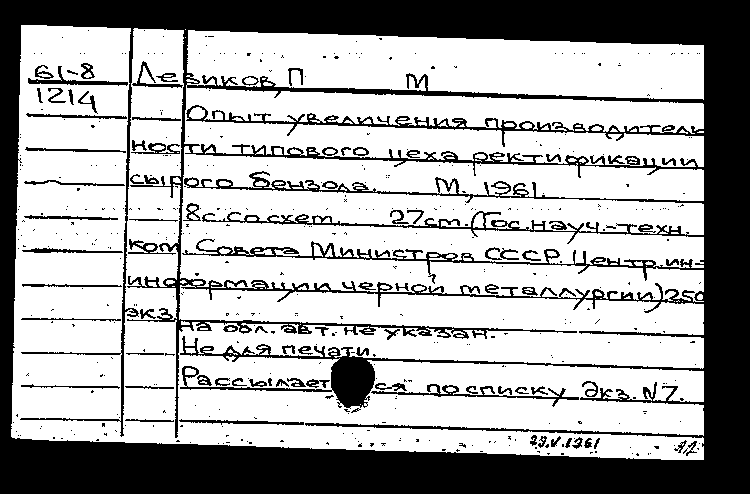 61-8 Левиков, П М
1214
Опыт увеличения производитель
ности типового цеха ректификации
сырого бензола. М., 1961.
8с. со схем. 27см. (Гос. науч.-техн.
ком. Совета Министров СССР. Центр. ин-т
информации черной металлургии) 250
экз.
на обл. авт. не указан.
Не для печати.
Рассылается по списку Экз. N7.
29.V.1961